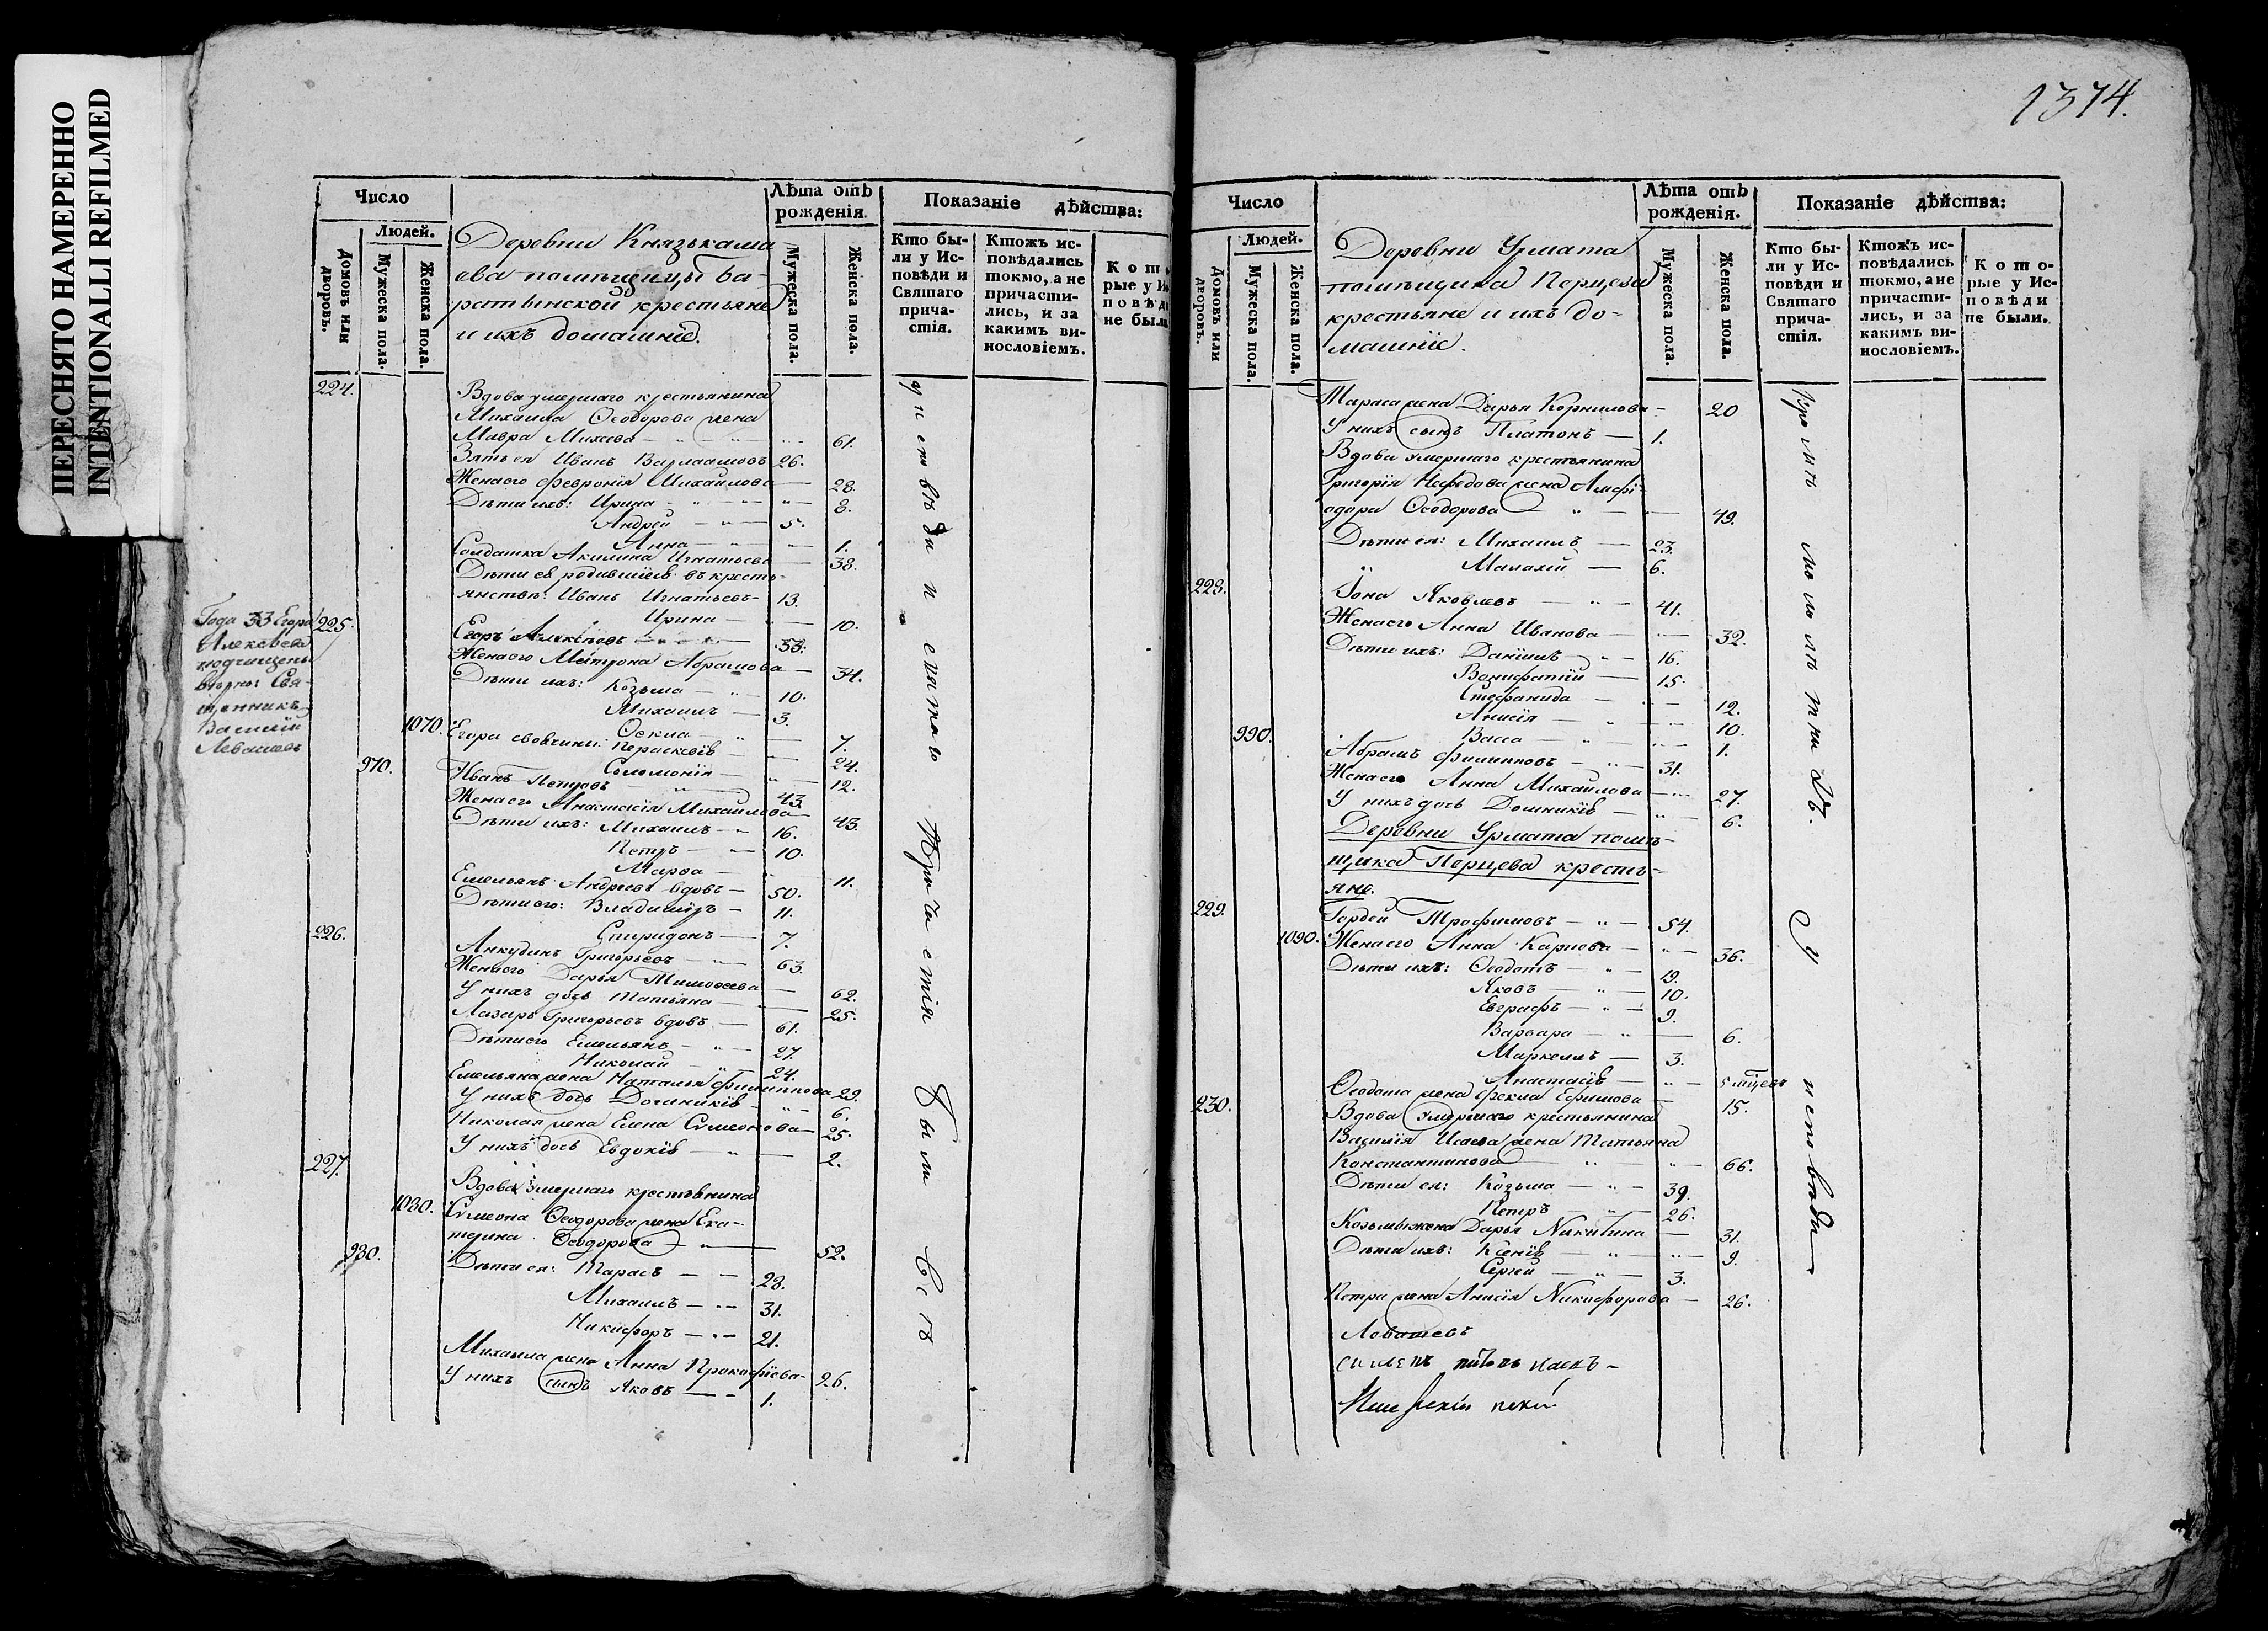 ПЕРЕСНЯТО НАМЕРЕННО
INTENTIONALLI REFILMED
1374.
Число
Людей.
Домовъ или дворовъ.
Мужеска пола.
Женска пола.
Лѣта отъ рожденія.
Мужеска пола.
Женска пола.
Показаніе дѣйства:
Кто бы-
ли у Ис-
повѣди и
Святаго
прича-
стія.
Ктожъ ис-
повѣдались
токмо, а не
причасти-
лись, и за
какимъ ви-
нословіемъ.
Деревни Князькама
ева помѣщицы Ба-
ратынской крестьяне
и ихъ домашніе.
224.
Вдова умершаго крестьянина
Михаила Ѳеодорова жена
Мавра Михеева 61.
Зять ея Иванъ Варлаамовъ 26.
Жена его Февронія Михайлова 28.
Дѣти ихъ: Ирина 8.
Андрей 5.
Анна 1.
Солдатка Акилина Игнатьева 38.
Дѣти ея родившіеся въ кресть-
янствѣ: Иванъ Игнатьевъ 13.
Ирина 10.
225.
Егоръ Алексѣевъ 53.
Жена его Матрона Абрамова 34.
Дѣти ихъ: Козьма 10.
Михаилъ 3.
1070.
Ѳекла 7.
Егора своячины: Параскевія 24.
970.
Соломонія 12.
Иванъ Петровъ 43.
Жена его Анастасія Михайлова 43.
Дѣти ихъ: Михаилъ 16.
Петръ 10.
Марѳа 11.
Емельянъ Андреевъ вдовъ 50.
Дѣти его: Владиміръ 11.
Спиридонъ 7.
226.
Анкудинъ Григорьевъ 63.
Жена его Дарья Тимоѳеева 62.
У нихъ дочь Татьяна 25.
Лазарь Григорьевъ вдовъ 61.
Дѣти его Емельянъ 27.
Николай 24.
Емельяна жена Наталья Филиппова 29.
У нихъ дочь Домникія 6.
Николая жена Елена Симеонова 25.
У нихъ дочь Евдокія 2.
227.
Вдова умершаго крестьянина
1080.
Симеона Ѳеодорова жена Ека-
терина Ѳеодорова 52.
980.
Дѣти ея: Тарасъ 28.
Михаилъ 31.
Никифоръ 21.
Михаила жена Анна Прокофіева 26.
У нихъ сынъ Яковъ 1.
Года 53 Егора
Алексѣева
подчищены
вѣрно: Свя-
щенникъ
Василій
Левашевъ
у исповѣди и святаго Причастія были всѣ
Число
Людей.
Домовъ или дворовъ.
Мужеска пола.
Женска пола.
Лѣта отъ рожденія.
Мужеска пола.
Женска пола.
Показаніе дѣйства:
Кто бы-
ли у Ис-
повѣди и
Святаго
прича-
стія.
Ктожъ ис-
повѣдались
токмо, а не
причасти-
лись, и за
какимъ ви-
нословіемъ.
Кото-
рые у Ис-
повѣди
не были.
Деревни Урмата
помѣщика Перцева
крестьяне и ихъ до-
машніе.
Тараса жена Дарья Корнилова 20
У нихъ сынъ Платонъ 1.
Вдова умершаго крестьянина
Григорія Нефедова жена
Ѳеодорова 49.
Дѣти ея: Михаилъ 23.
Малахій 6.
228.
Іона Яковлевъ 41.
Жена его Анна Иванова 32.
Дѣти ихъ: Даніилъ 16.
Вонифатій 15.
Стефанида 12.
Анисія 10.
990.
Васса 1.
Абрамъ Филипповъ 31.
Жена его Анна Михайлова 27.
У нихъ дочь Домникія 6.
Деревни Урмата помѣ-
щика Перцева кресть-
яне.
229.
Гордей Трофимовъ 54.
1090.
Жена его Анна Карпова 36.
Дѣти ихъ: Ѳеодотъ 19.
Яковъ 10.
Евграфъ 9.
Варвара 6.
Маркеллъ 3.
Анастасія 5 мцевъ
Ѳеодота жена Фекла Ефимова 15.
230.
Вдова умершаго крестьянина
Василія Исаева жена Татьяна
Константинова 66.
Дѣти ея: Козьма 39.
Петръ 26.
Козьмы жена Дарья Никитина 31.
Дѣти ихъ: Ксенія 9.
Сергій 3.
Петра жена Анисія Никифорова 26.
У исповѣди